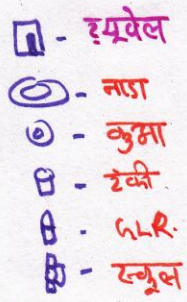 - ट्यूवेल
- नाडा
- कुआ
- टंकी
- GLR.
- स्कूल